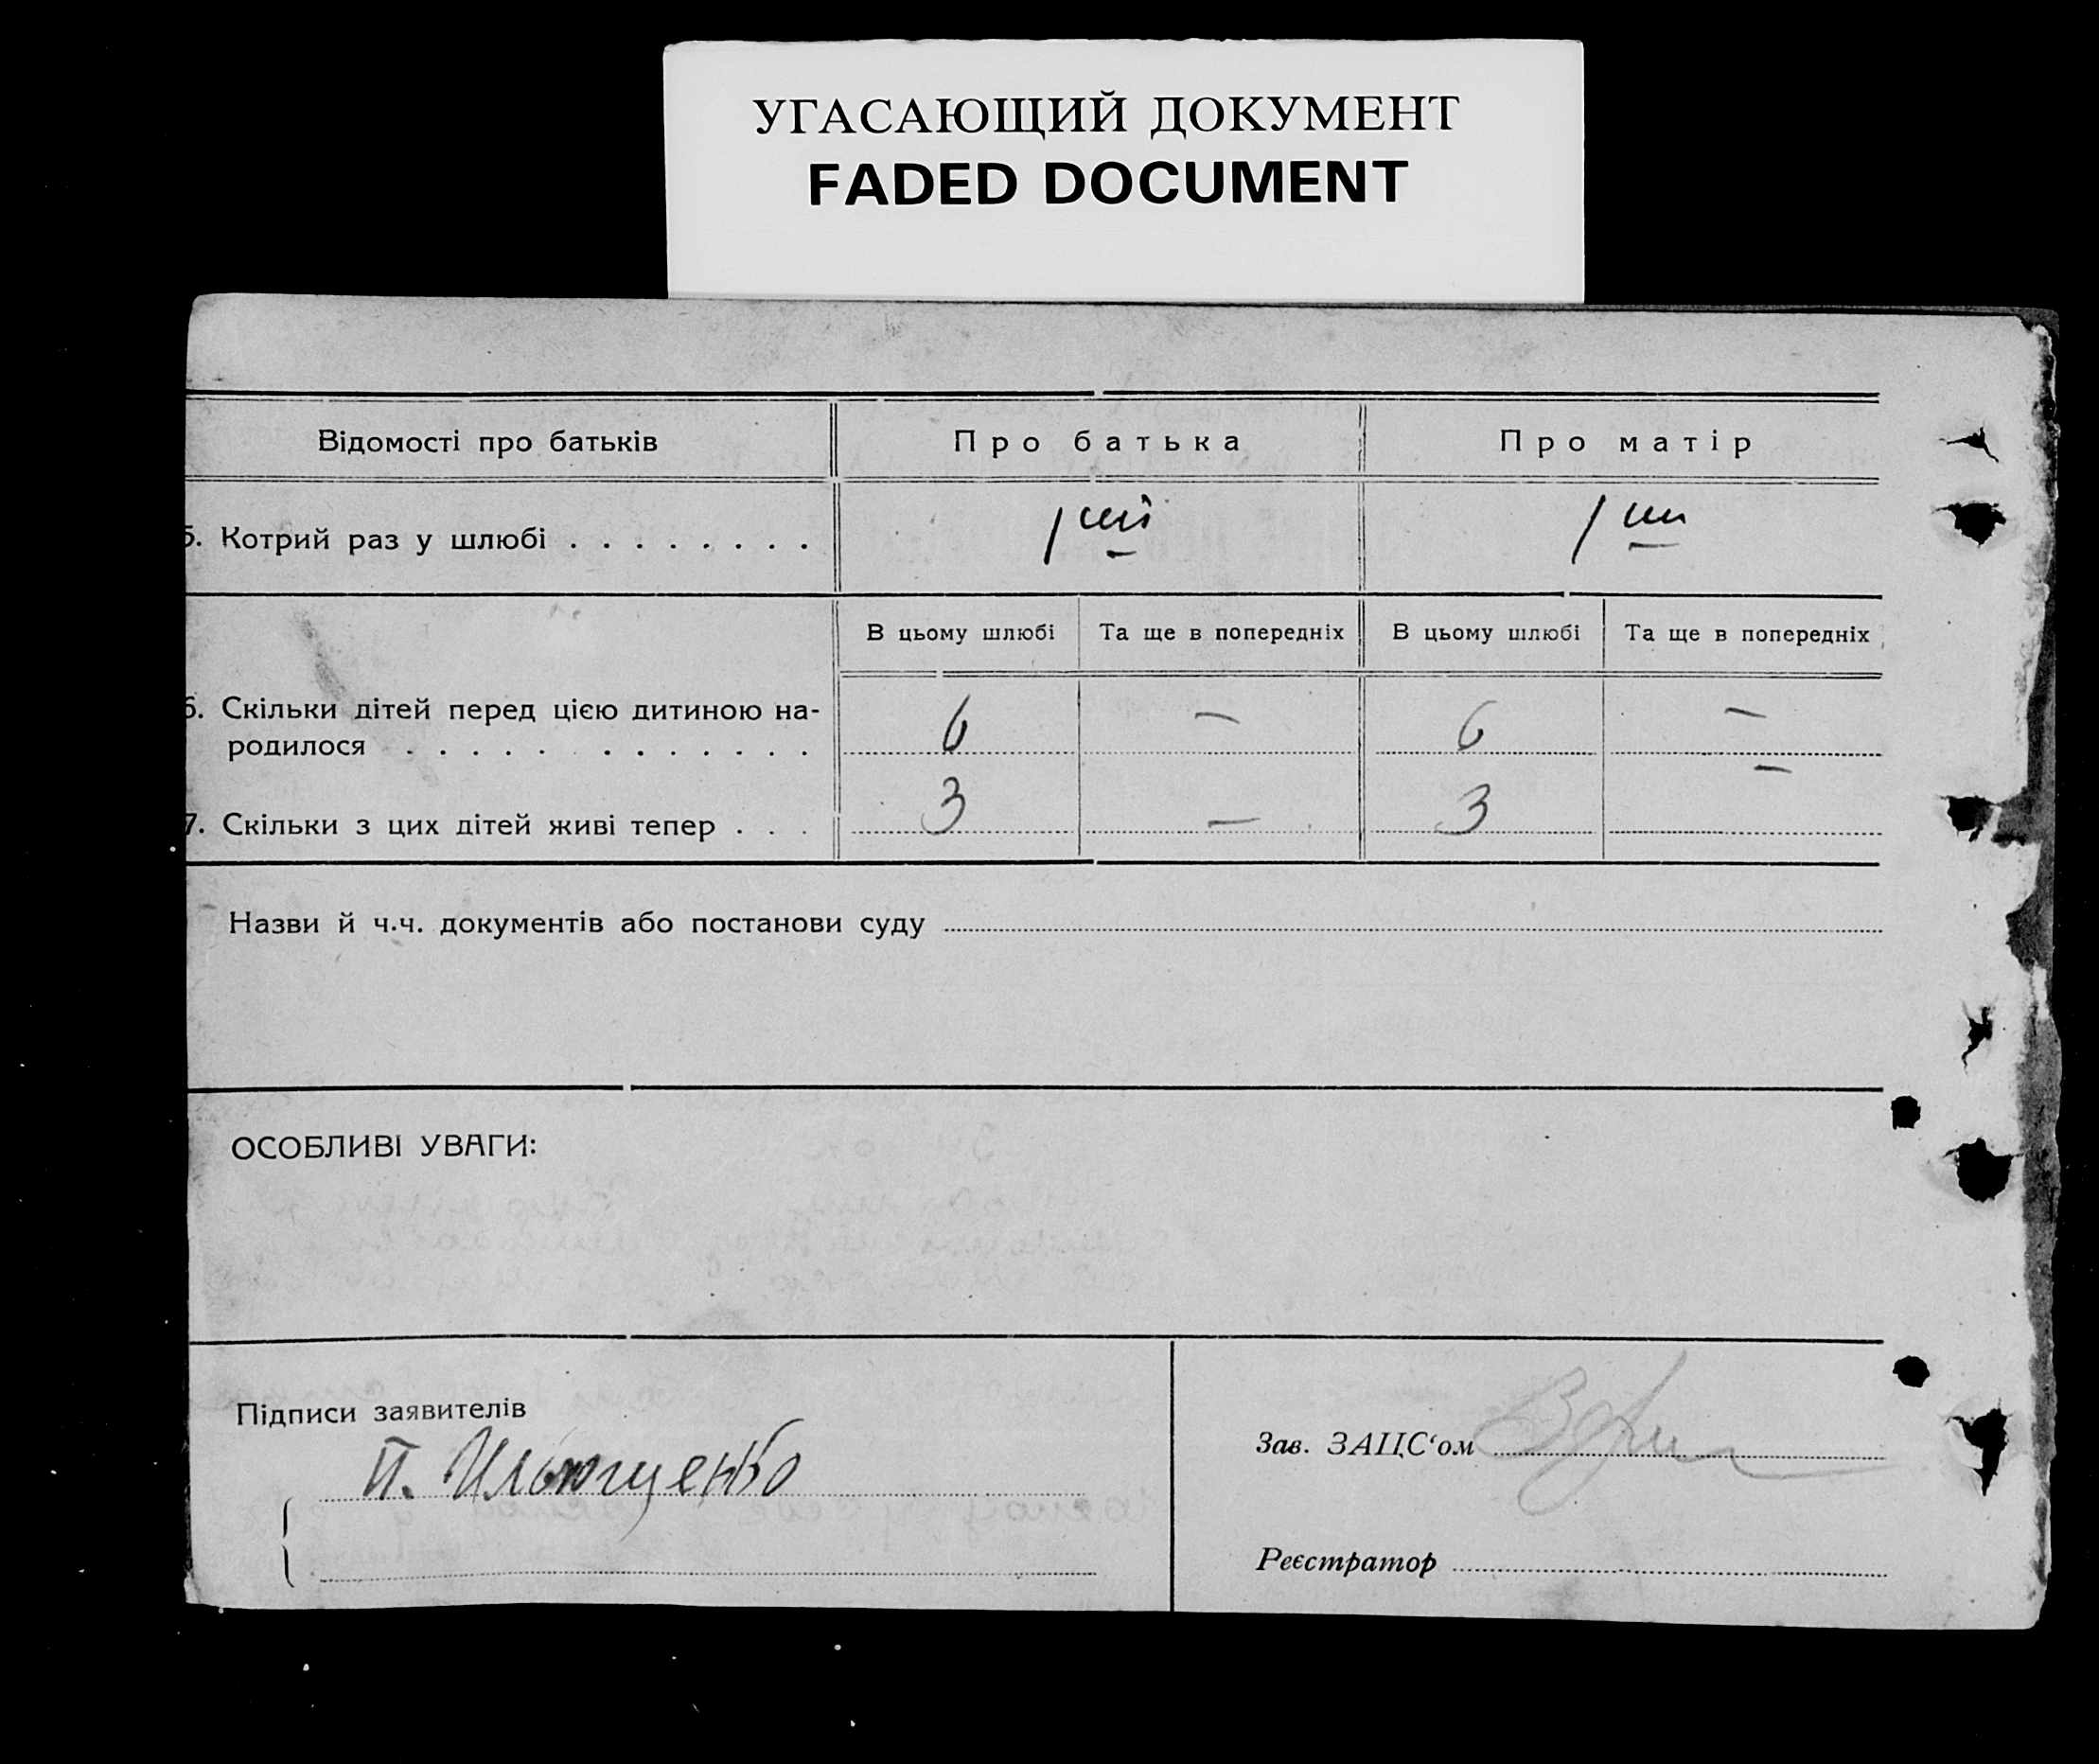 УГАСАЮЩИЙ ДОКУМЕНТ
FADED DOCUMENT
Відомості про батьків Про батька Про матір
5. Котрий раз у шлюбі . . . . . . . . 1 ший 1 ши
В цьому шлюбі Та ще в попередніх В цьому шлюбі Та ще в попередніх
6. Скільки дітей перед цією дитиною на-
родилося . . . . . . . . . . . . 6 — 6 —
7. Скільки з цих дітей живі тепер . . . 3 — 3 —
Назви й ч.ч. документів або постанови суду
ОСОБЛИВІ УВАГИ:
Підписи заявителів
П. Ильющенко
Зав. ЗАЦС‘ом
Реєстратор